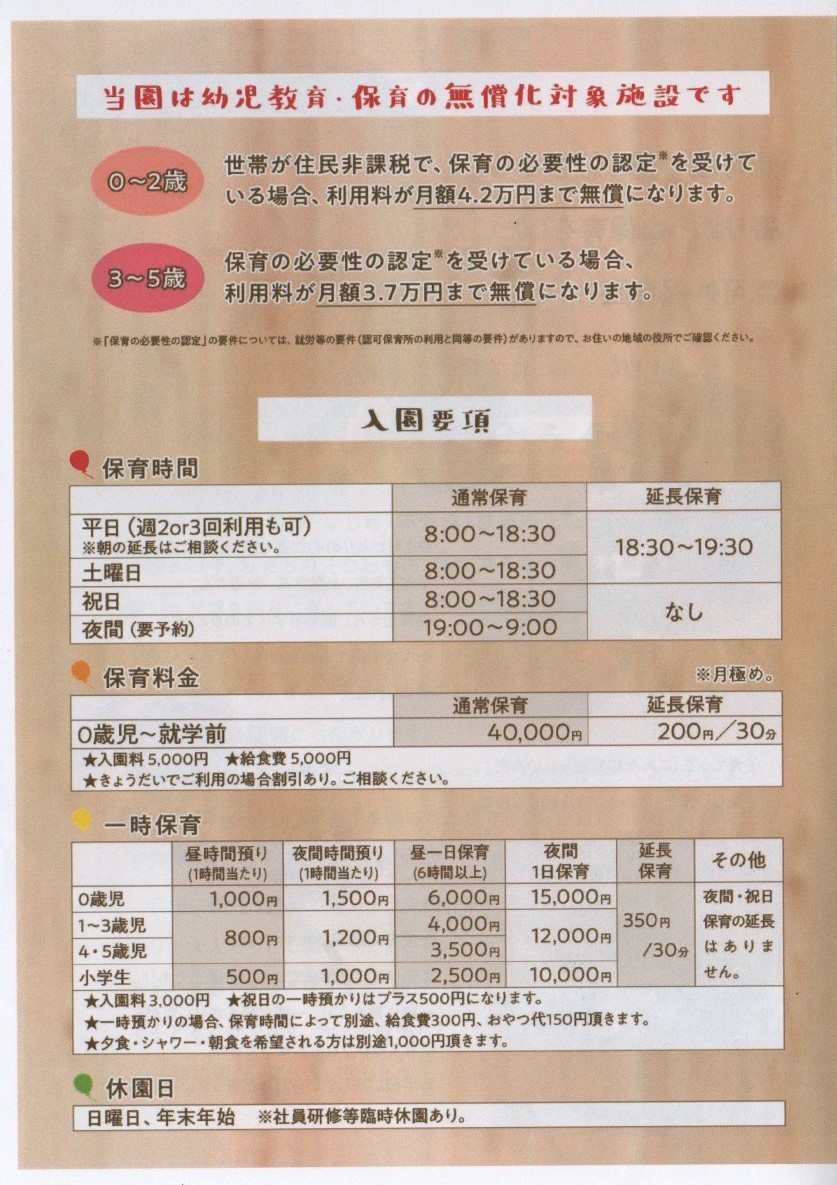 当園は幼児教育・保育の無償化対象施設です
0〜2歳
世帯が住民非課税で、保育の必要性の認定※を受けて
いる場合、利用料が月額4.2万円まで無償になります。
3〜5歳
保育の必要性の認定※を受けている場合、
利用料が月額3.7万円まで無償になります。
※「保育の必要性の認定」の要件については、就労等の要件(認可保育所の利用と同等の要件)がありますので、お住いの地域の役所でご確認ください。
入園要項
保育時間
通常保育 延長保育
平日(週2or3回利用も可) 8:00〜18:30 18:30〜19:30
※朝の延長はご相談ください。
土曜日 8:00〜18:30
祝日 8:00〜18:30 なし
夜間(要予約) 19:00〜9:00
保育料金 ※月極め。
通常保育 延長保育
0歳児〜就学前 40,000円 200円/30分
★入園料5,000円 ★給食費5,000円
★きょうだいでご利用の場合割引あり。ご相談ください。
一時保育
昼時間預り (1時間当たり) 夜間時間預り (1時間当たり) 昼一日保育 (6時間以上) 夜間 1日保育 延長 保育 その他
0歳児 1,000円 1,500円 6,000円 15,000円 350円/30分 夜間・祝日保育の延長はありません。
1〜3歳児 800円 1,200円 4,000円 12,000円
4・5歳児 3,500円
小学生 500円 1,000円 2,500円 10,000円
★入園料3,000円 ★祝日の一時預かりはプラス500円になります。
★一時預かりの場合、保育時間によって別途、給食費300円、おやつ代150円頂きます。
★夕食・シャワー・朝食を希望される方は別途1,000円頂きます。
休園日
日曜日、年末年始 ※社員研修等臨時休園あり。